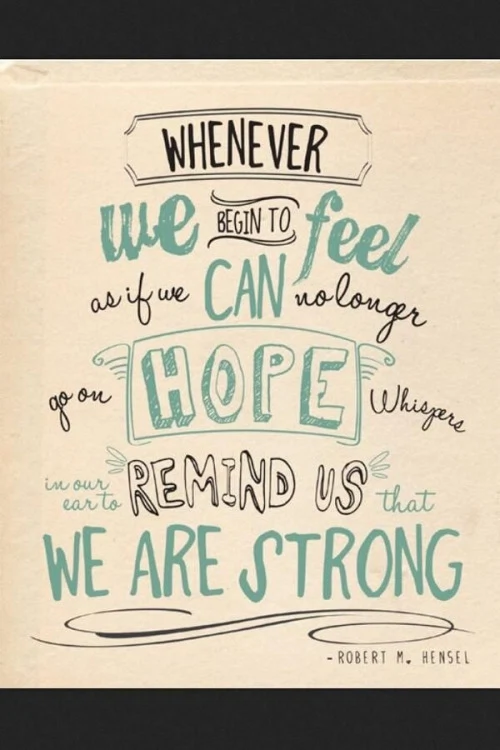 WHENEVER
we BEGIN TO feel
as if we CAN no longer
go on HOPE Whispers
in our ear to REMIND US that
WE ARE STRONG
-ROBERT M. HENSEL